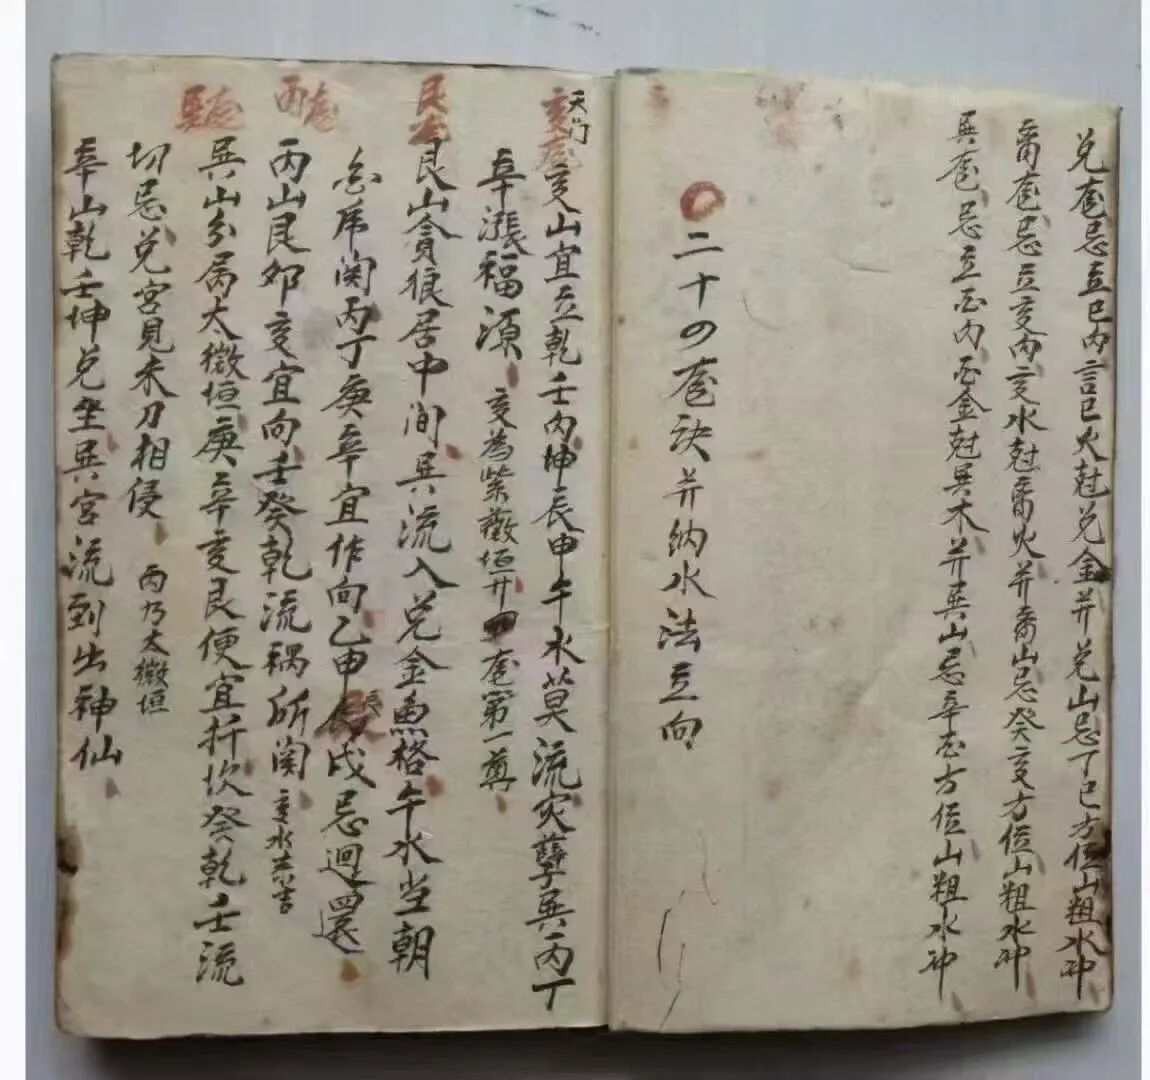 兑龍忌立巳內言巳火尅兑金并兑山忌丁巳方位山粗水冲
离龍忌立亥內亥水尅离火并离山忌癸亥方位山粗水冲
巽龍忌立酉內酉金尅巽木并巽山忌辛酉方位山粗水冲
二十四龍诀并纳水法立向
天门
亥龍
亥山宜立乾壬丙坤辰申午水莫流灾孽巽丙丁
辛漲福源 亥為紫薇垣廿四龍第一尊
艮龍
艮山貪狼居中间巽流入兑金魚格午水当朝
怠席阅丙丁庚辛宜作向乙申辰戌忌迴還
丙龍
丙山艮邜亥宜向壬癸乾流祸所関 亥水亦吉
巽龍
巽山分属太微垣庚辛亥艮便宜扦坎癸乾壬流
切忌兑宫見未刀相侵 丙乃太微垣
辛山乾壬坤兑坐巽宫流到出神仙